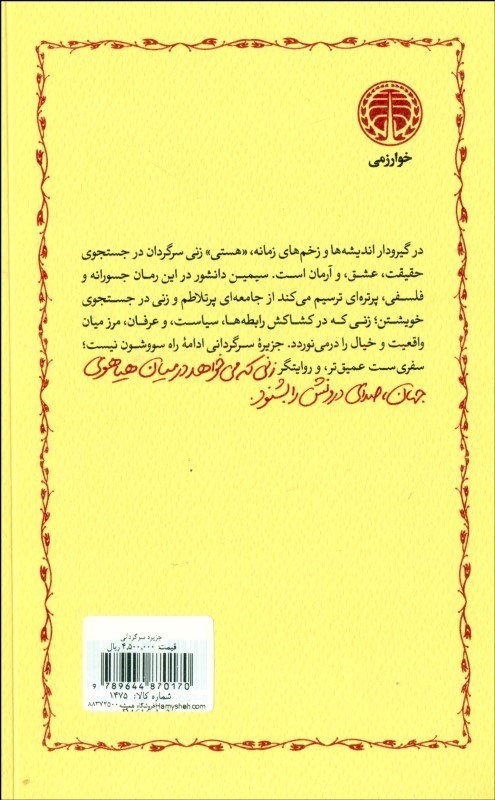 خوارزمی
در گیرودار اندیشه‌ها و زخم‌های زمانه، «هستی» زنی سرگردان در جستجوی
حقیقت، عشق، و آرمان است. سیمین دانشور در این رمان جسورانه و
فلسفی، پرتره‌ای ترسیم می‌کند از جامعه‌ای پرتلاطم و زنی در جستجوی
خویشتن؛ زنی که در کشاکش رابطه‌ها، سیاست، و عرفان، مرز میان
واقعیت و خیال را درمی‌نوردد. جزیرهٔ سرگردانی ادامهٔ راه سووشون نیست؛
سفری‌ست عمیق‌تر، و روایتگر زنی که می‌خواهد در میان هیاهوی
جهان، صدای درونش را بشنود.
جزیره سرگردانی
قیمت: ۴,۵۰۰,۰۰۰ ریال
9 789644 870170
شماره کالا: ۱۴۷۵
Hamysheh.com فروشگاه همیشه ۸۸۳۷۲۵۰۰